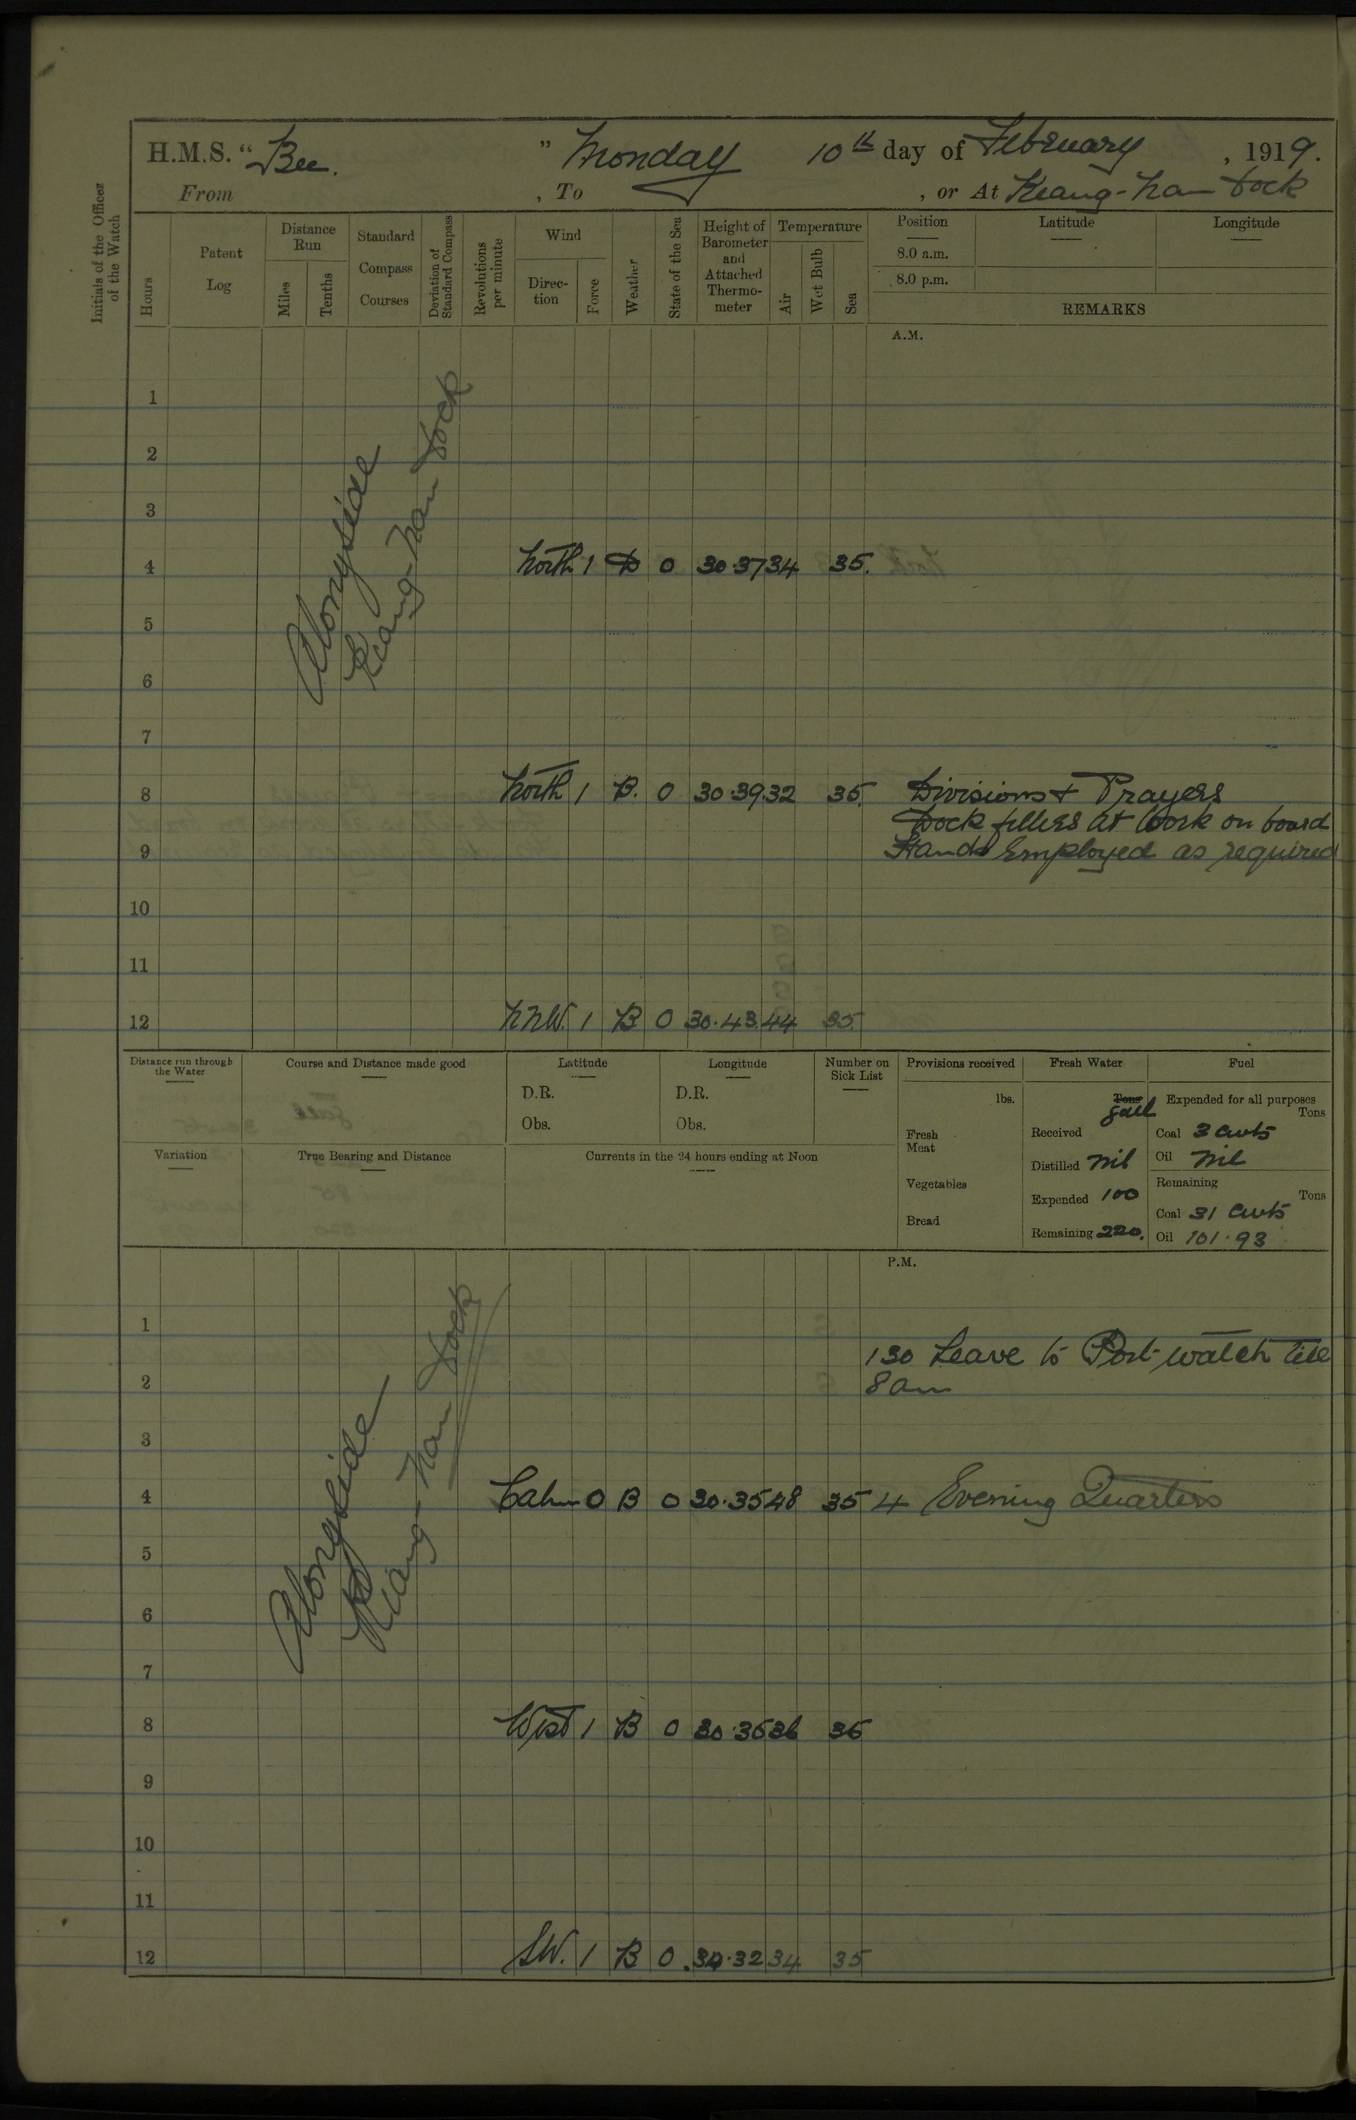 H.M.S. "Bee." Monday 10th day of February, 1919.
From , To , or At Kiang-Nan Dock
Initials of the Officer of the Watch
Hours
Patent Log
Distance Run
Miles
Tenths
Standard Compass Courses
Deviation of Standard Compass
Revolutions per minute
Wind
Direction
Force
Weather
State of the Sea
Height of Barometer and Attached Thermometer
Temperature
Air
Wet Bulb
Sea
Position
8.0 a.m.
8.0 p.m.
Latitude
Longitude
REMARKS
A.M.
Alongside
Kiang-Nan Dock
1
2
3
4 North 1 B 0 30.37 34 35.
5
6
7
8 North 1 B. 0 30.39. 32 35. Divisions & Prayers
Dock fitters at work on board
9 Hands Employed as required
10
11
12 NNW. 1 B 0 30.43. 44 35.
Distance run through the Water
Course and Distance made good
Latitude
D.R.
Obs.
Longitude
D.R.
Obs.
Number on Sick List
Variation
True Bearing and Distance
Currents in the 24 hours ending at Noon
Provisions received
lbs.
Fresh Meat
Vegetables
Bread
Fresh Water
Tons Gall
Received
Distilled Nil
Expended 100
Remaining 220.
Fuel
Expended for all purposes
Tons
Coal 3 Cwts
Oil Nil
Remaining
Tons
Coal 31 Cwts
Oil 101.93
P.M.
Alongside
Kiang-Nan Dock
1
130 Leave to Port watch till
2 8 am
3
4 Calm 0 B 0 30.35 48 35 4 Evening Quarters
5
6
7
8 West 1 B 0 30.36 36 36
9
10
11
12 SW. 1 B 0 30.32 34 35